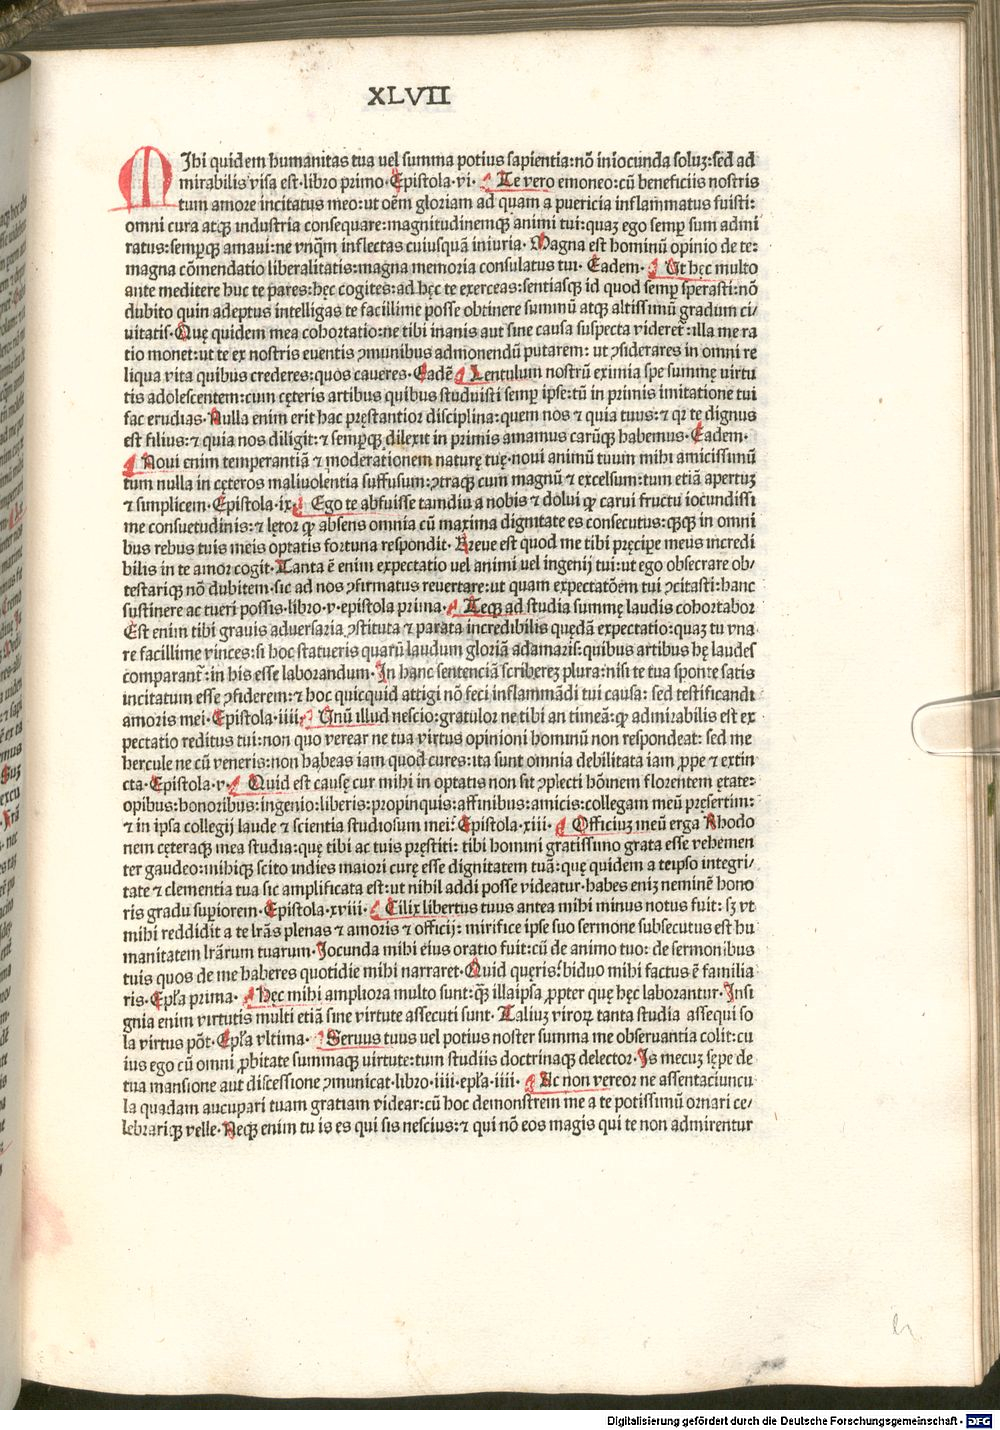 XLVII
MIhi quidem humanitas tua uel summa potius sapientia:nõ iniocunda soluz:sed ad
mirabilis visa est.libro primo.Epistola.vi. Te vero emoneo:cũ beneficiis nostris
tum amore incitatus meo:ut oẽm gloriam ad quam a puericia inflammatus fuisti:
omni cura atqꝫ industria consequare:magnitudinemqꝫ animi tui:quaz ego semꝑ sum admi
ratus:semꝑqꝫ amaui:ne vnq̃m inflectas cuiusquã iniuria. Magna est hominũ opinio de te:
magna cõmendatio liberalitatis:magna memoria consulatus tui. Eadem. Ut hęc multo
ante meditere huc te ꝑares:hęc cogites:ad hęc te exerceas:sentiasqꝫ id quod semꝑ sperasti:nõ
dubito quin adeptus intelligas te facillime posse obtinere summũ atqꝫ altissimũ gradum ci/
uitatis.Quę quidem mea cohortatio:ne tibi inanis aut sine causa suspecta videret̃:illa me ra
tio monet:ut te ex nostris euentis ꝯmunibus admonendũ putarem: ut ꝯsiderares in omni re
liqua vita quibus crederes:quos caueres.Eadẽ Lentulum nostrũ eximia spe summę virtu
tis adolescentem:cum cęteris artibus quibus studuisti semꝑ ipse:tũ in primis imitatione tui
fac erudias.Nulla enim erit hac pręstantior disciplina:quem nos ⁊ quia tuus:⁊ qꝛ te dignus
est filius:⁊ quia nos diligit:⁊ semꝑqꝫ dilexit in primis amamus carũqꝫ habemus.Eadem.
Noui enim temperantiã ⁊ moderationem naturę tuę.noui animũ tuum mihi amicissimũ
tum nulla in cęteros maliuolentia suffusum:ꝯtraqꝫ cum magnũ ⁊ excelsum:tum etiã apertuz
⁊ simplicem.Epistola.ix. Ego te abfuisse tamdiu a nobis ⁊ dolui qꝙ carui fructu iocundissi
me consuetudinis:⁊ lętor qꝙ absens omnia cũ maxima dignitate es consecutus:qꝫqꝫ in omni
bus rebus tuis meis optatis fortuna respondit. Breue est quod me tibi pręcipe meus incredi
bilis in te amor cogit.Tanta ẽ enim expectatio uel animi uel ingenij tui:ut ego obsecrare ob/
testariqꝫ nõ dubitem.sic ad nos ꝯfirmatus reuertare:ut quam expectatõem tui ꝯcitasti:hanc
sustinere ac tueri possis.libro.v.epistola prima. Teqꝫ ad studia summę laudis cohortabor
Est enim tibi grauis aduersaria ꝯstituta ⁊ parata incredibilis quędã expectatio:quaz tu vna
re facillime vinces:si hoc statueris quarũ laudum gloriã adamaris:quibus artibus hę laudes
comparant̃:in his esse laborandum.In hanc sentenciã scriberez plura:nisi te tua sponte satis
incitatum esse ꝯfiderem:⁊ hoc quicquid attigi nõ feci inflammãdi tui causa: sed testificandi
amoris mei.Epistola.iiii. Unũ illud nescio:gratuloz ne tibi an timeã:qꝙ admirabilis est ex
pectatio reditus tui:non quo verear ne tua virtus opinioni hominũ non respondeat: sed me
hercule ne cũ veneris:non habeas iam quod cures:ita sunt omnia debilitata iam ꝓpe ⁊ extin
cta.Epistola.v. Quid est causę cur mihi in optatis non sit ꝯplecti hõinem florentem ętate:
opibus:honoribus:ingenio:liberis:propinquis:affinibus:amicis:collegam meũ presertim:
⁊ in ipsa collegij laude ⁊ scientia studiosum mei: Epistola.xiii. Officiuz meũ erga Rhodo
nem cęteraqꝫ mea studia:quę tibi ac tuis pręstiti: tibi homini gratissimo grata esse vehemen
ter gaudeo:mihiqꝫ scito indies maiori curę esse dignitatem tuã:quę quidem a teipso integri/
tate ⁊ clementia tua sic amplificata est:ut nihil addi posse videatur.habes eniz neminẽ hono
ris gradu suꝑiorem.Epistola.xviii. Cilix libertus tuus antea mihi minus notus fuit: sꝫ vt
mihi reddidit a te lr̃as plenas ⁊ amoris ⁊ officij: mirifice ipse suo sermone subsecutus est hu
manitatem lr̃arum tuarum.Jocunda mihi eius oratio fuit:cũ de animo tuo: de sermonibus
tuis quos de me haberes quotidie mihi narraret.Quid quęris?biduo mihi factus ẽ familia
ris.Epl̃a prima. Hęc mihi ampliora multo sunt:qꝫ̃ illaipsa ꝓpter quę hęc laborantur.Insi
gnia enim virtutis multi etiã sine virtute assecuti sunt. Taliuz viroꝝ tanta studia assequi so
la virtus põt.Epl̃a vltima. Seruus tuus uel potius noster summa me obseruantia colit:cu
ius ego cũ omni ꝓbitate summaqꝫ uirtute:tum studiis doctrinaqꝫ delector.Is mecuz sępe de
tua mansione aut discessione ꝯmunicat.libro.iiii.epl̃a.iiii. Ac non vereor ne assentaciuncu
la quadam aucupari tuam gratiam videar:cũ hoc demonstrem me a te potissimũ ornari ce/
lebrariqꝫ velle.Neqꝫ enim tu is es qui sis nescius:⁊ qui nõ eos magis qui te non admirentur
Digitalisierung gefördert durch die Deutsche Forschungsgemeinschaft - DFG